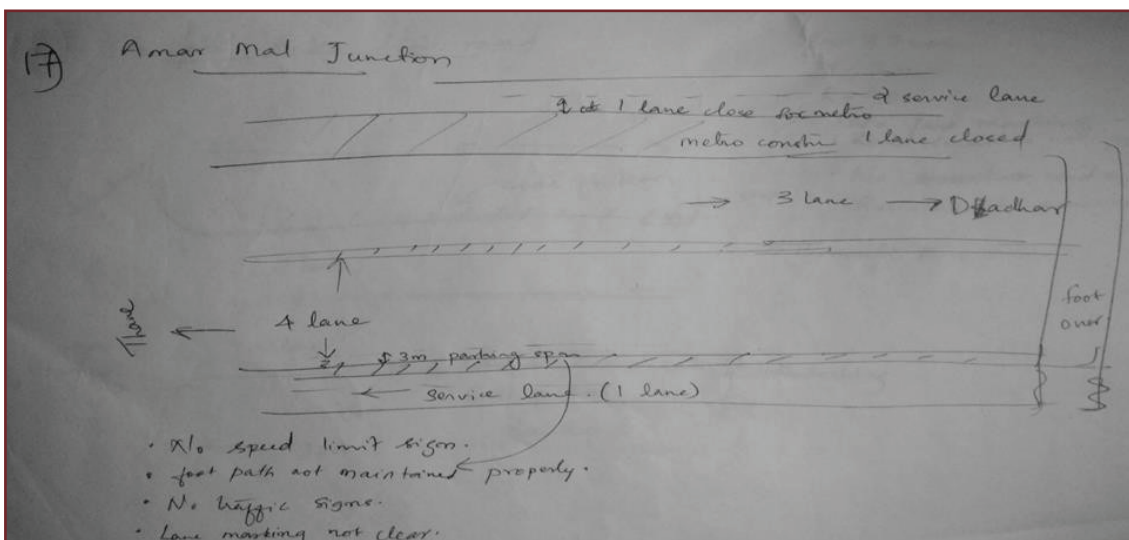 17) Amar Mal Junction
2 service lane
1 lane close for metro
metro constn 1 lane closed
→ 3 lane → Dadhar
foot
over
Thane ← 4 lane
3m parking span
← service lane. (1 lane)
• No speed limit sign.
• foot path not maintained properly.
• No traffic signs.
• Lane marking not clear.